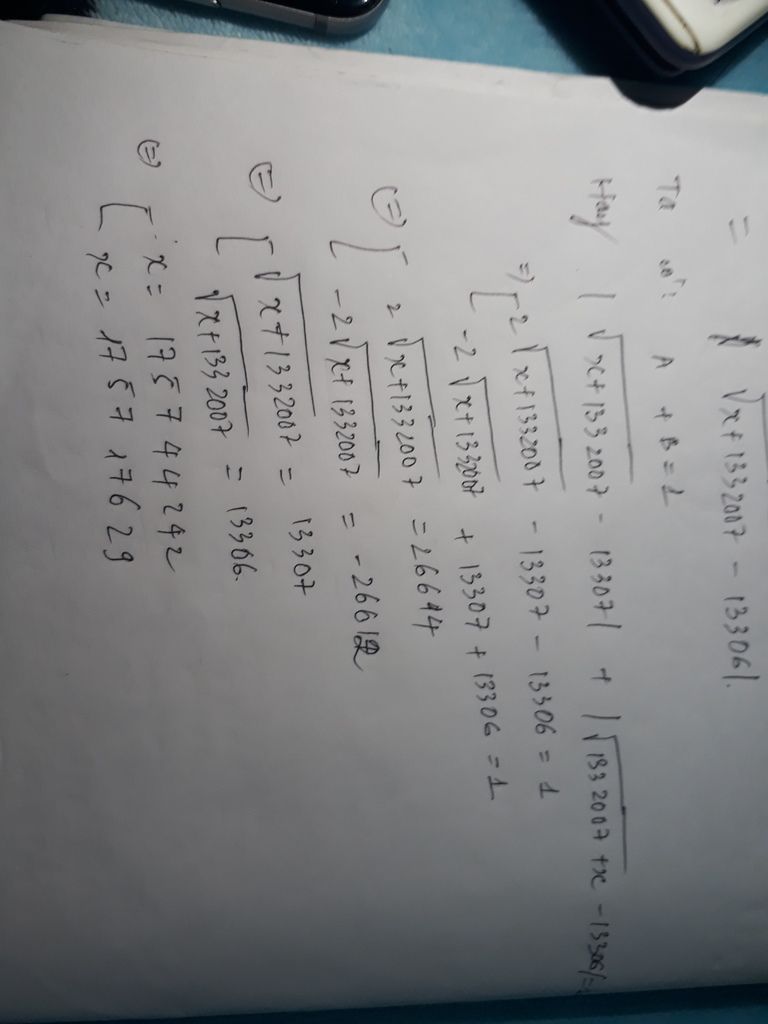 = √x+1332007 - 13306|.
Ta có: A + B = 1
Hay | √x+1332007 - 13307 | + | √1332007 +x - 13306 | =
=> [ 2 √x+1332007 - 13307 - 13306 = 1
-2 √x+1332007 + 13307 + 13306 = 1
(=) [ 2 √x+1332007 = 26614
-2 √x+1332007 = - 26612
(=) [ √x+1332007 = 13307
√x+1332007 = 13306.
(=) [ x = 175744242
x = 175717629